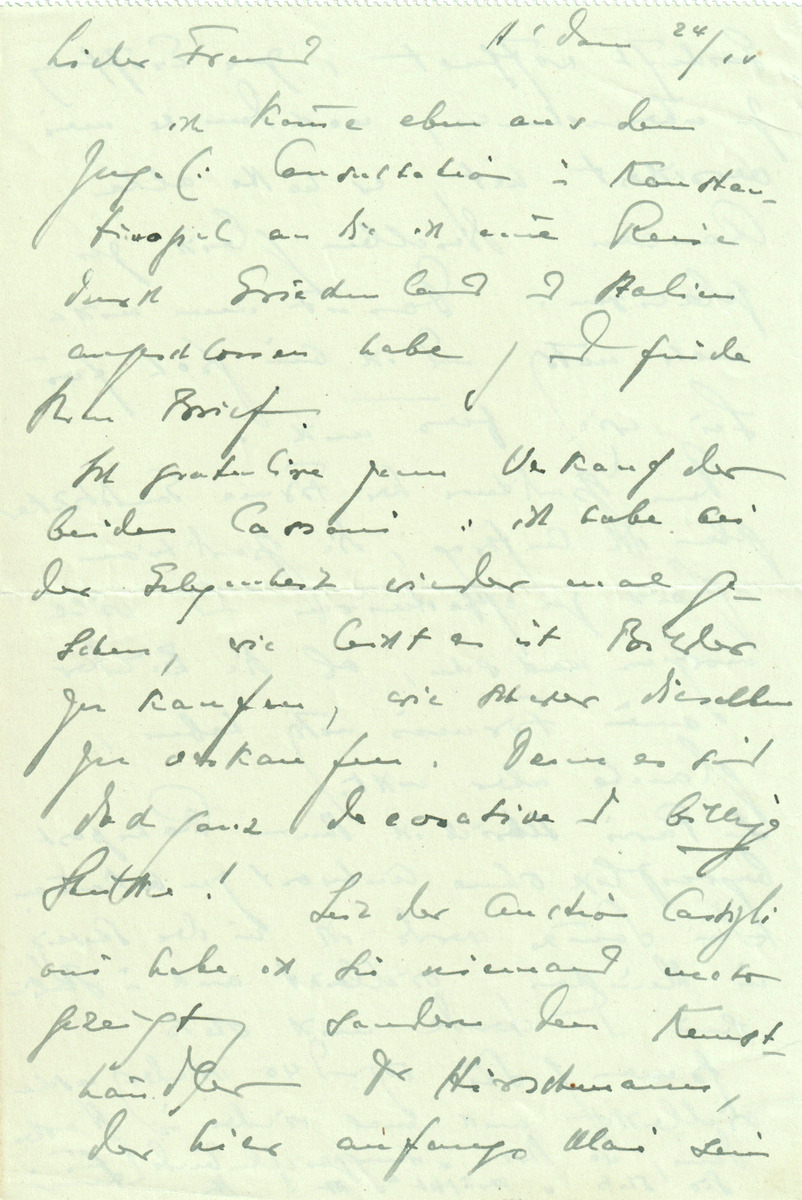 A'dam 24/IV
Lieber Freund
ich komme eben aus dem
Zuge (: Consultation in Konstan-
tinopel an die ich eine Reise
durch Griechenland und Italien
angeschlossen habe) und finde
Ihren Brief.
Ich gratuliere zum Verkauf der
beiden Cassoni : ich habe bei
der Gelegenheit wieder mal ge-
sehen, wie leicht es ist Bilder
zu kaufen, wie schwer dieselben
zu verkaufen. Denn es sind
doch ganz decorative und billige
Stücke! Seit der Auction Castigli
oni habe ich sie niemand mehr
gezeigt, sondern dem Kunst-
händler Dr Hirschmann,
der hier anfangs Mai sein